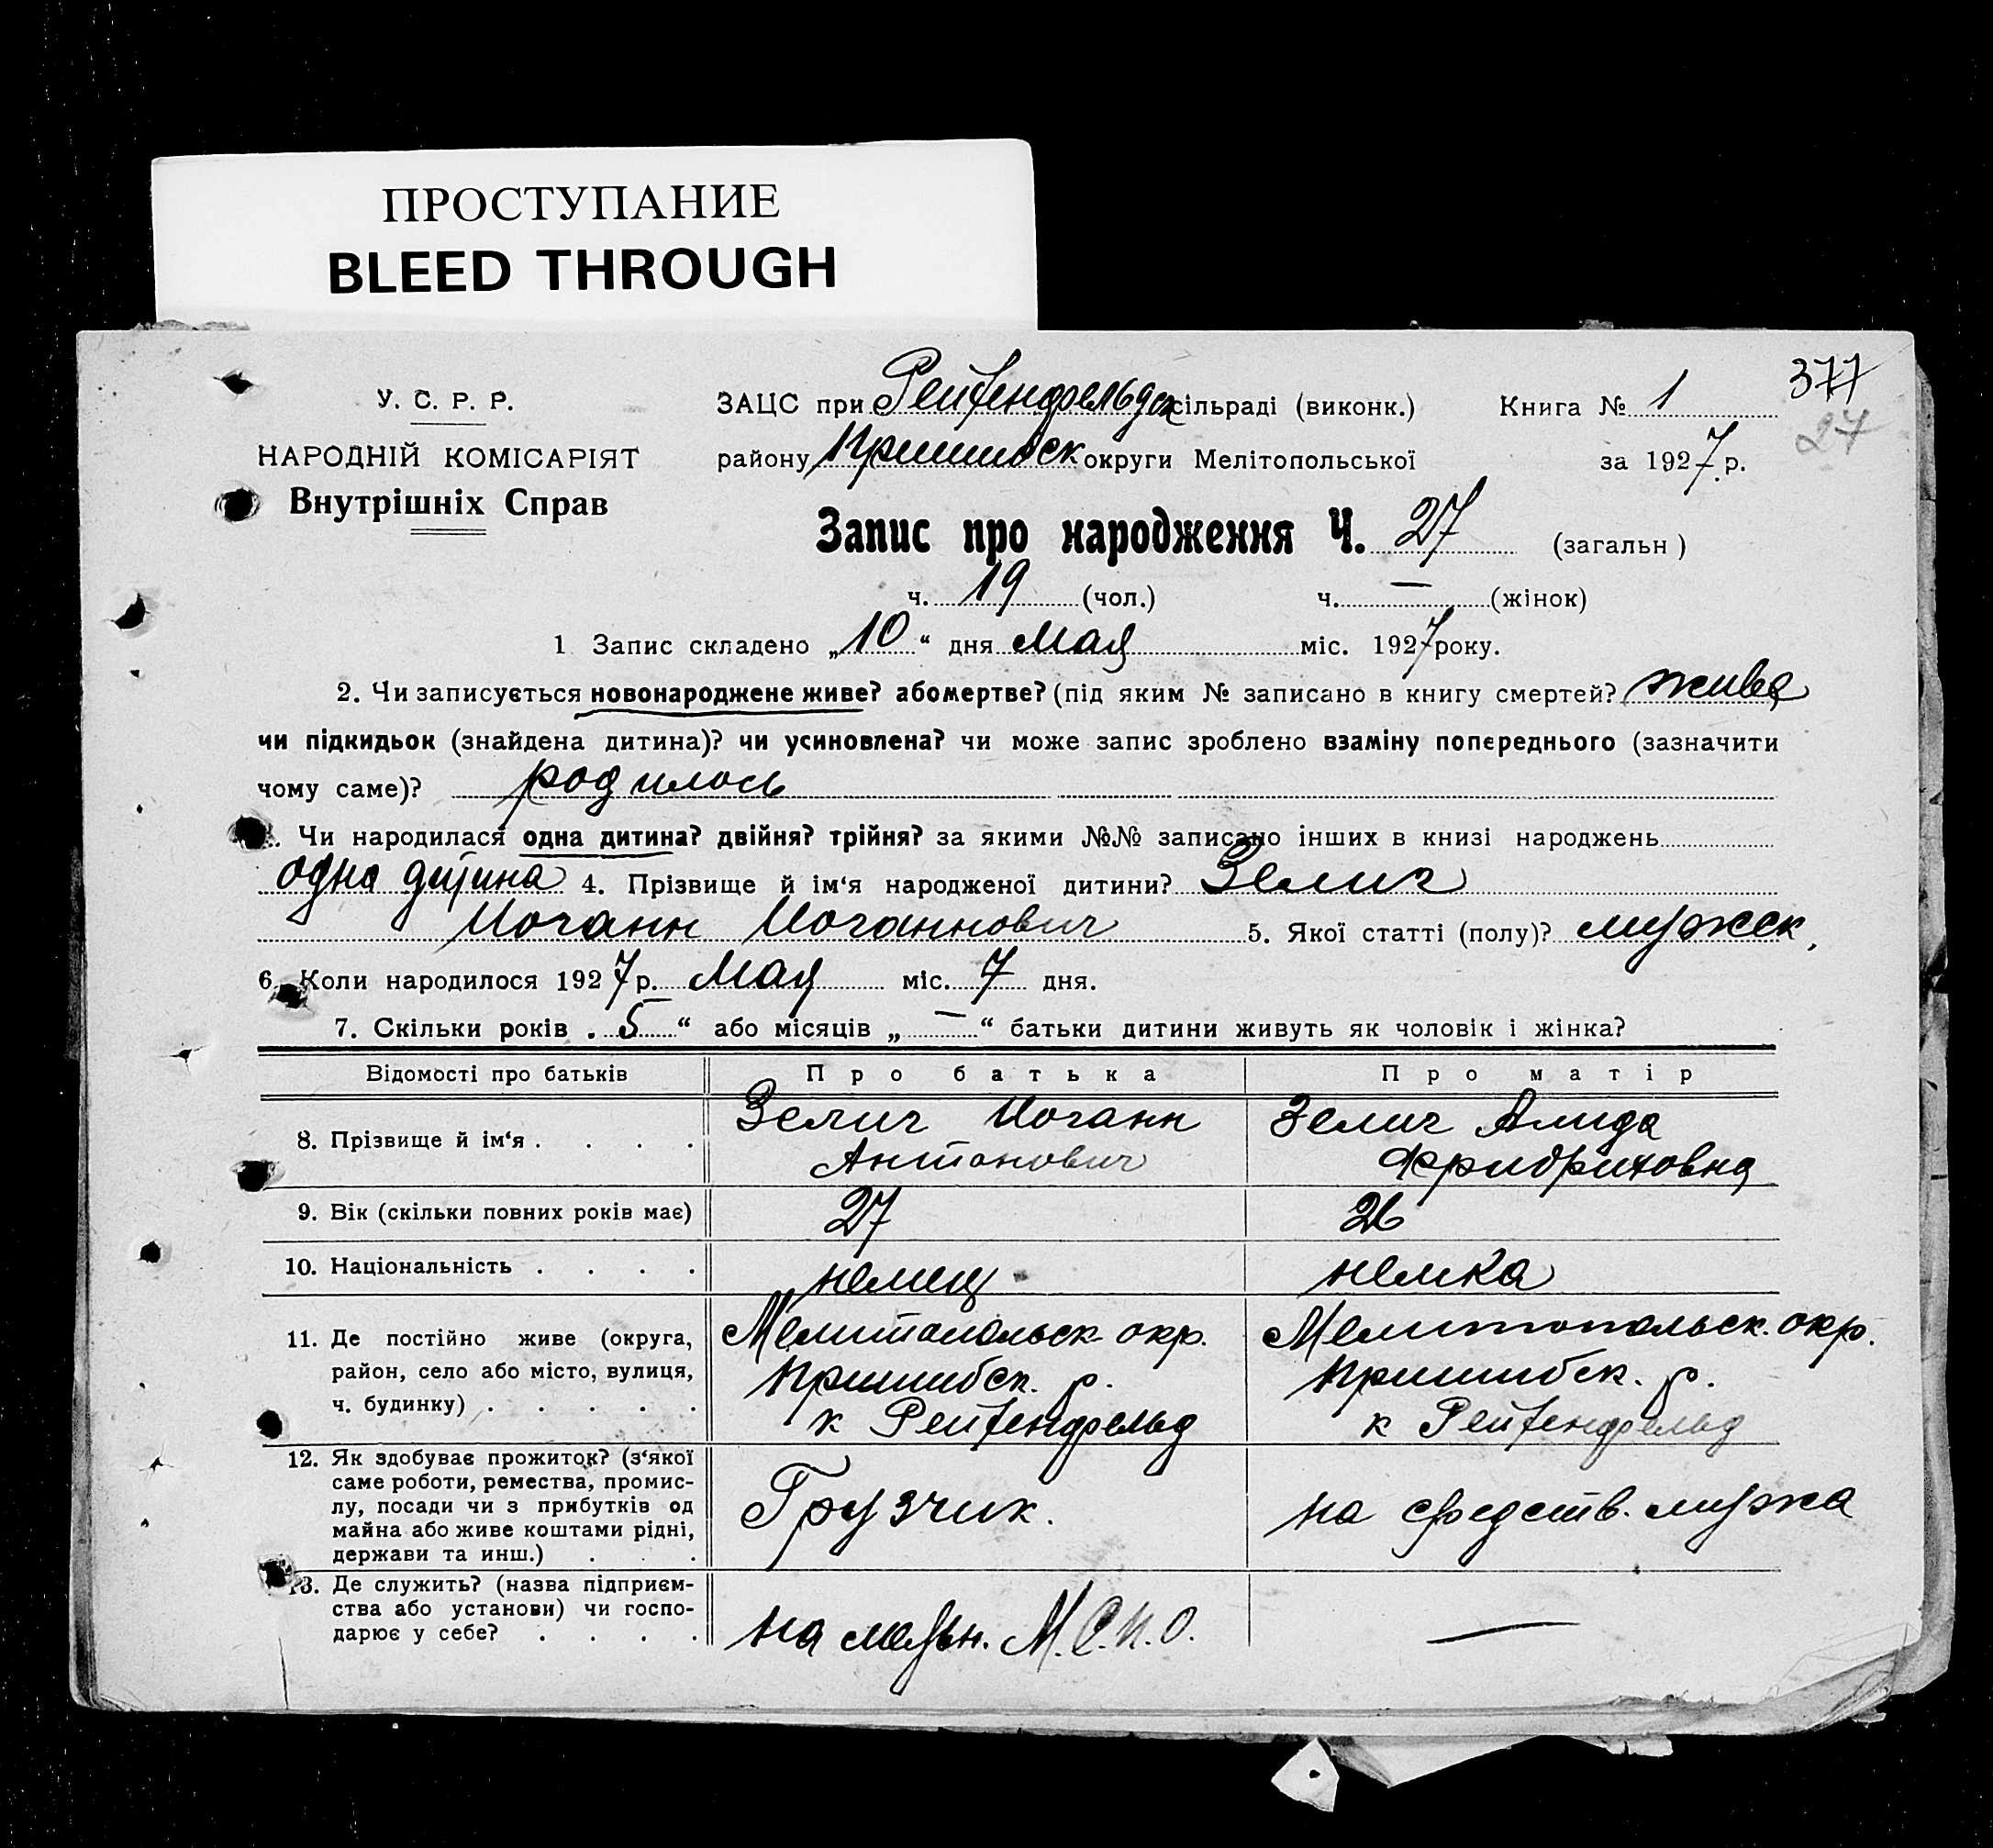 ПРОСТУПАНИЕ
BLEED THROUGH
377
27
У. С. Р. Р.
НАРОДНІЙ КОМІСАРІЯТ
Внутрішніх Справ
ЗАЦС при Рейхенфельдск сільраді (виконк.) Книга № 1
району Пришибск округи Мелітопольської за 1927 р.
Запис про народження Ч. 27 (загальн)
ч. 19 (чол.) ч. — (жінок)
1 Запис складено „10“ дня Мая міс. 1927 року.
2. Чи записується новонароджене живе? або мертве? (під яким № записано в книгу смертей?) живе
чи підкидьок (знайдена дитина)? чи усиновлена? чи може запис зроблено взаміну попереднього (зазначити
чому саме)? родилось
3. Чи народилася одна дитина? двійня? трійня? за якими №№ записано інших в книзі народжень
одна дитина 4. Прізвище й ім‘я народженої дитини? Зелиг
Иоганн Иоганнович 5. Якої статті (полу)? мужск.
6. Коли народилося 1927 р. Мая міс. 7 дня.
7. Скільки років „5“ або місяців „—“ батьки дитини живуть як чоловік і жінка?
Відомості про батьків Про батька Про матір
8. Прізвище й ім‘я . . . . Зелиг Иоганн Антонович Зелиг Алида Фридриховна
9. Вік (скільки повних років має) 27 26
10. Національність . . . . немец немка
11. Де постійно живе (округа, Мелитопольск окр. Мелитопольск. окр.
район, село або місто, вулиця, Пришибск. р. Пришибск. р.
ч. будинку) . . . . . к Рейхенфельд к Рейхенфельд
12. Як здобуває прожиток? (з‘якої
саме роботи, ремества, промис-
лу, посади чи з прибутків од Грузчик. на средств. мужа
майна або живе коштами рідні,
держави та инш.) . . .
13. Де служить? (назва підприєм-
ства або установи) чи госпо-
дарює у себе? . . . . на мельн. М.С.П.О. —